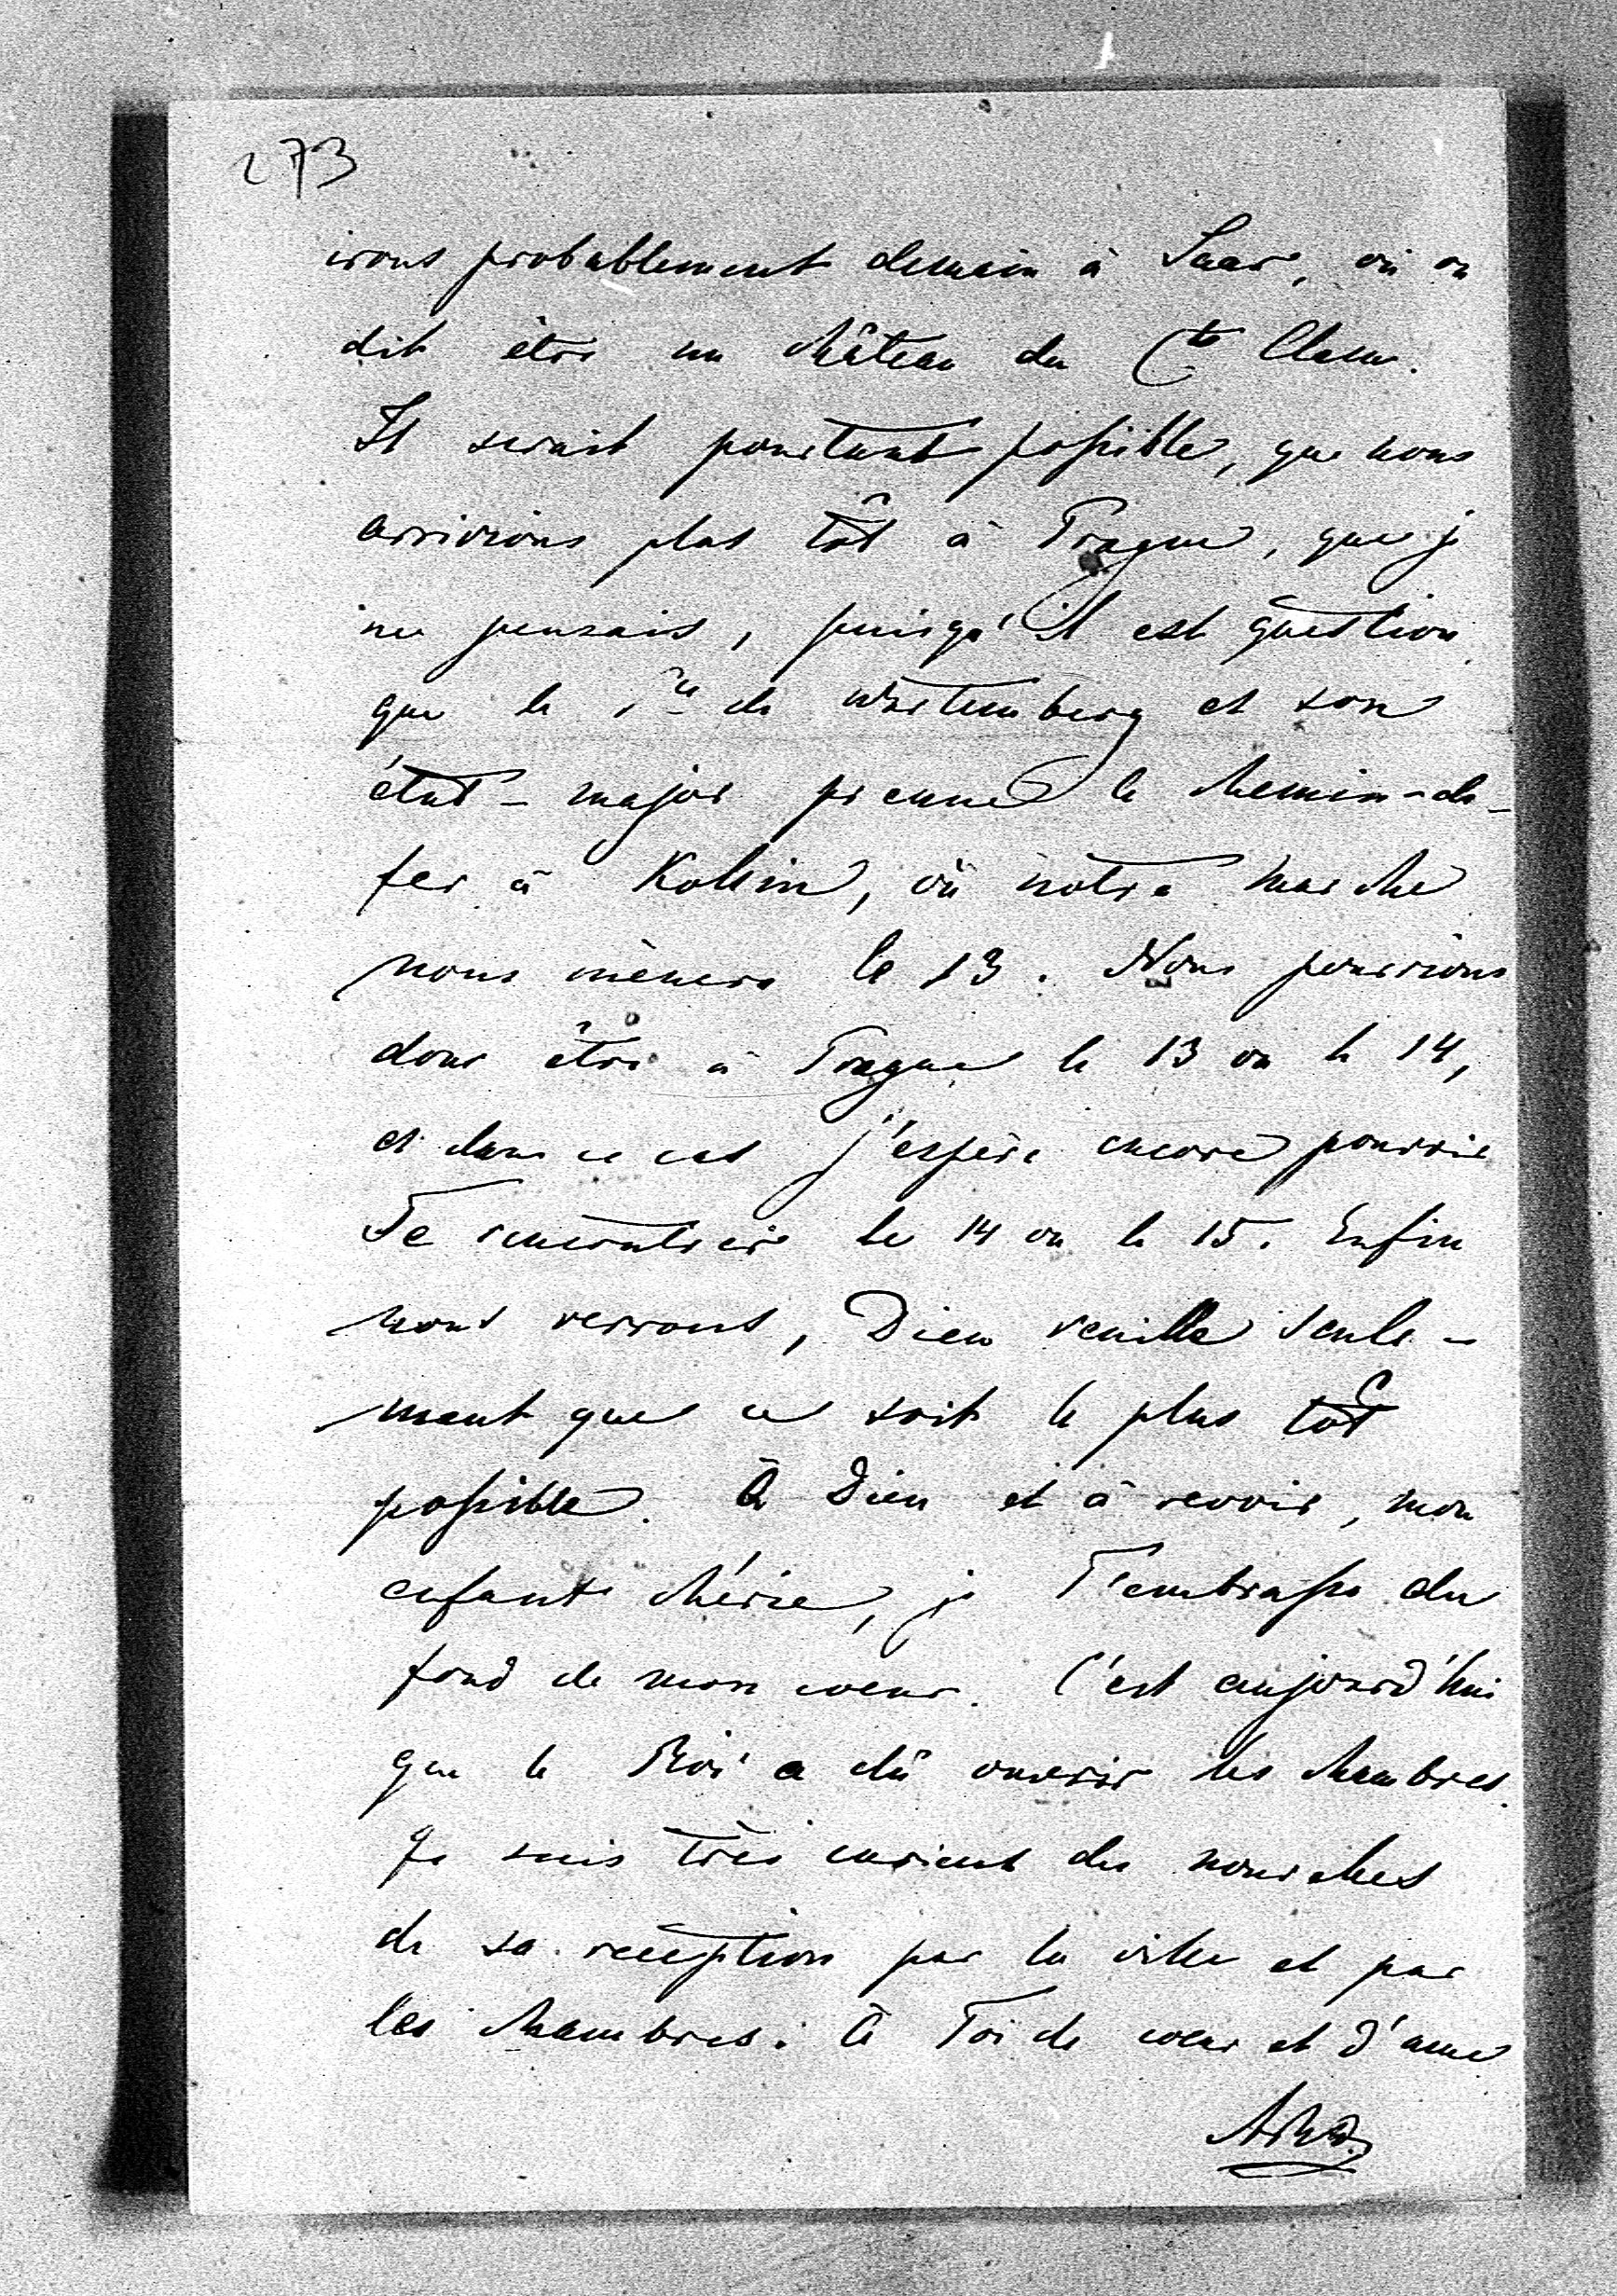 273
irons probablement demain à Saar, où on
dit être un château du Cte Clam.
Il serait pourtant possible, que nous
arrivions plus tôt à Prague, que je
ne pensais, puisqu'il est question
que le Pce de Wurtemberg et son
état-major prenne le chemin-de-
fer à Kollin, où nôtre marche
nous mènera le 13. Nous pourrions
donc être à Prague le 13 ou le 14,
et dans ce cas j'espère encore pouvoir
Te rencontrer le 14 ou le 15. Enfin
nous verrons, Dieu veuille seule-
ment que ce soit le plus tôt
possible. À Dieu et à revoir, mon
enfant chérie, je T'embrasse du
fond de mon coeur. C'est aujourd'hui
que le Roi a dû ouvrir les chambres.
Je suis très curieux des nouvelles
de sa reception par la ville et par
les chambres. À Toi de coeur et d'ame